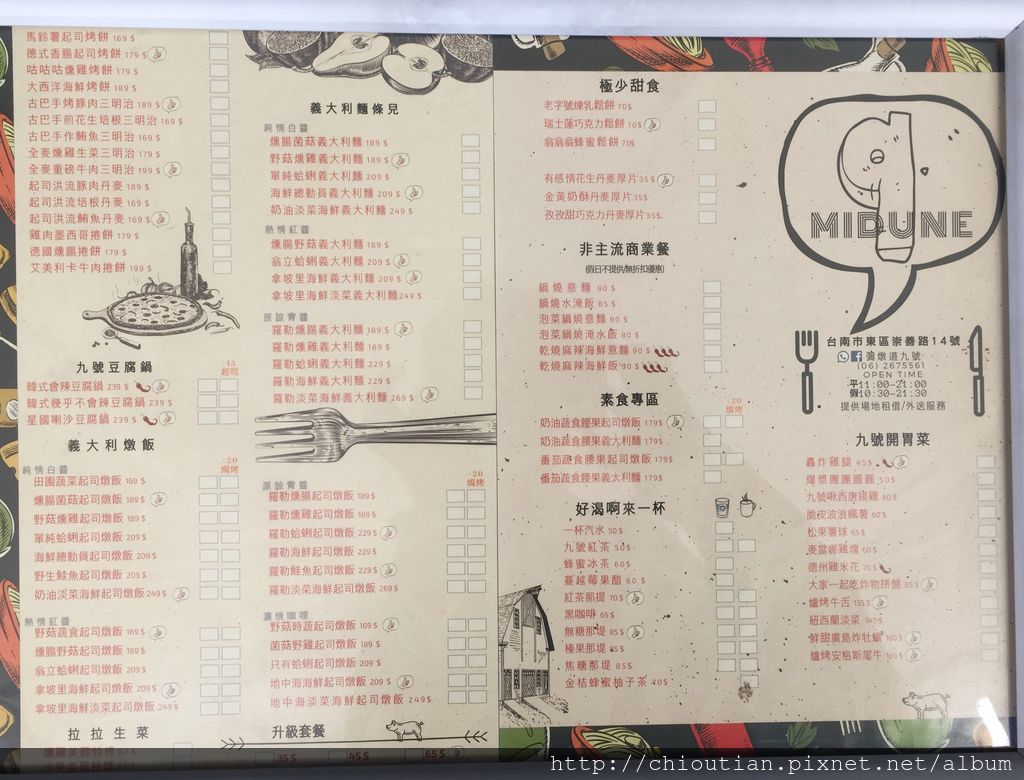 馬鈴薯起司烤餅 169 $
德式香腸起司烤餅 179 $
咕咕咕燻雞烤餅 179 $
大西洋海鮮烤餅 189 $
古巴手烤豚肉三明治 189 $
古巴手煎花生培根三明治 169 $
古巴手作鮪魚三明治 169 $
全麥燻雞生菜三明治 179 $
全麥重磅牛肉三明治 199 $
起司洪流豚肉丹麥 189 $
起司洪流培根丹麥 169 $
起司洪流鮪魚丹麥 169 $
雞肉墨西哥捲餅 179 $
德國燻腸捲餅 179 $
艾美利卡牛肉捲餅 199 $
九號豆腐鍋
+15
起司
韓式會辣豆腐鍋 239 $
韓式幾乎不會辣豆腐鍋 239 $
星國喇沙豆腐鍋 239 $
義大利燉飯
+20
焗烤
純情白醬
田園蔬菜起司燉飯 169 $
燻腸菌菇起司燉飯 189 $
野菇燻雞起司燉飯 189 $
單純蛤蜊起司燉飯 209 $
海鮮總動員起司燉飯 209 $
野生鮭魚起司燉飯 209 $
奶油淡菜海鮮起司燉飯 249 $
熱情紅醬
野菇蔬食起司燉飯 169 $
燻腸野菇起司燉飯 189 $
翁立蛤蜊起司燉飯 209 $
拿坡里海鮮起司燉飯 209 $
拿坡里海鮮淡菜起司燉飯 249 $
拉拉生菜
義大利麵條兒
純情白醬
燻腸菌菇義大利麵 189 $
野菇燻雞義大利麵 189 $
單純蛤蜊義大利麵 209 $
海鮮總動員義大利麵 209 $
奶油淡菜海鮮義大利麵 249 $
熱情紅醬
燻腸野菇義大利麵 189 $
翁立蛤蜊義大利麵 209 $
拿坡里海鮮義大利麵 209 $
拿坡里海鮮淡菜義大利麵 249 $
原諒青醬
羅勒燻腸義大利麵 189 $
羅勒燻雞義大利麵 189 $
羅勒蛤蜊義大利麵 229 $
羅勒海鮮義大利麵 229 $
羅勒淡菜海鮮義大利麵 269 $
+20
焗烤
原諒青醬
羅勒燻腸起司燉飯 189 $
羅勒燻雞起司燉飯 189 $
羅勒蛤蜊起司燉飯 229 $
羅勒海鮮起司燉飯 229 $
羅勒鮭魚起司燉飯 229 $
羅勒淡菜海鮮起司燉飯 269 $
濃情咖哩
野菇時蔬起司燉飯 169 $
菌菇野雞起司燉飯 189 $
只有蛤蜊起司燉飯 209 $
地中海海鮮起司燉飯 209 $
地中海淡菜海鮮起司燉飯 249 $
升級套餐
35 $
45 $
65 $
極少甜食
老字號煉乳鬆餅 70 $
瑞士蓮巧克力鬆餅 70 $
翁翁翁蜂蜜鬆餅 70 $
有感情花生丹麥厚片 35 $
金黃奶酥丹麥厚片 35 $
孜孜甜巧克力丹麥厚片 35 $
非主流商業餐
(假日不提供/無折扣優惠)
鍋燒意麵 80 $
鍋燒水淹飯 85 $
泡菜鍋燒意麵 80 $
泡菜鍋燒淹水飯 80 $
乾燒麻辣海鮮意麵 90 $
乾燒麻辣海鮮飯 90 $
素食專區
+20
焗烤
奶油蔬食腰果起司燉飯 179 $
奶油蔬食腰果義大利麵 179 $
番茄蔬食腰果起司燉飯 179 $
番茄蔬食腰果義大利麵 179 $
好渴啊來一杯
一杯汽水 50 $
九號紅茶 50 $
蜂蜜冰茶 60 $
蔓越莓果醋 60 $
紅茶那堤 70 $
黑咖啡 65 $
無糖那堤 85 $
榛果那堤 85 $
焦糖那堤 85 $
金桔蜂蜜柚子茶 70 $
MIDUNE
台南市東區崇善路14號
彌燉道九號
(06) 2675561
OPEN TIME
平11:00-21:00
假10:30-21:30
提供場地租借/外送服務
九號開胃菜
轟炸雞腿 45 $
爆漿團團圓圓 50 $
九號啾西唐揚雞 60 $
脆皮波浪瘋薯 60 $
松果薯球 65 $
麥當娜雞塊 60 $
德州雞米花 70 $
大家一起吃炸物拼盤 85 $
爐烤牛舌 135 $
紐西蘭淡菜 145 $
鮮甜廣島炸牡蠣 160 $
爐烤安格斯黑牛 169 $
http://chioutian.pixnet.net/album